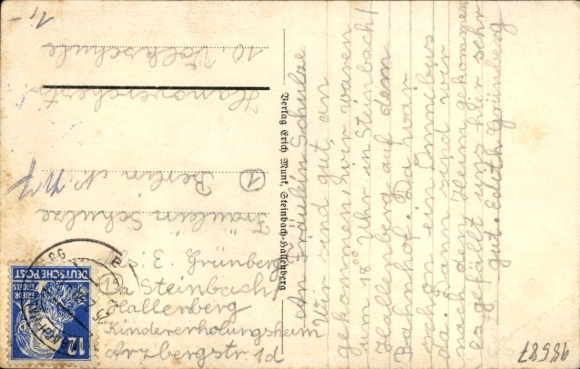 An Fräulein Schulze
Wir sind gut an
gekommen. Wir waren
um 18⁰⁰ Uhr in Steinbach/
Hallenberg auf dem
Bahnhof. Da war
schon ein Omnibus
da. Dann sind wir
nach dem Heim gekommen
es gefällt uns hier sehr
gut. Edith Grünberg
Verlag Erich Munk, Steinbach-Hallenberg
Fräulein Schulze
① Berlin N.
10 Volksschule
E. Grünberg
Steinbach/
Hallenberg
Kindererholungsheim
Arzbergstr. 1d
DEUTSCHE POST
12
1,-
98687